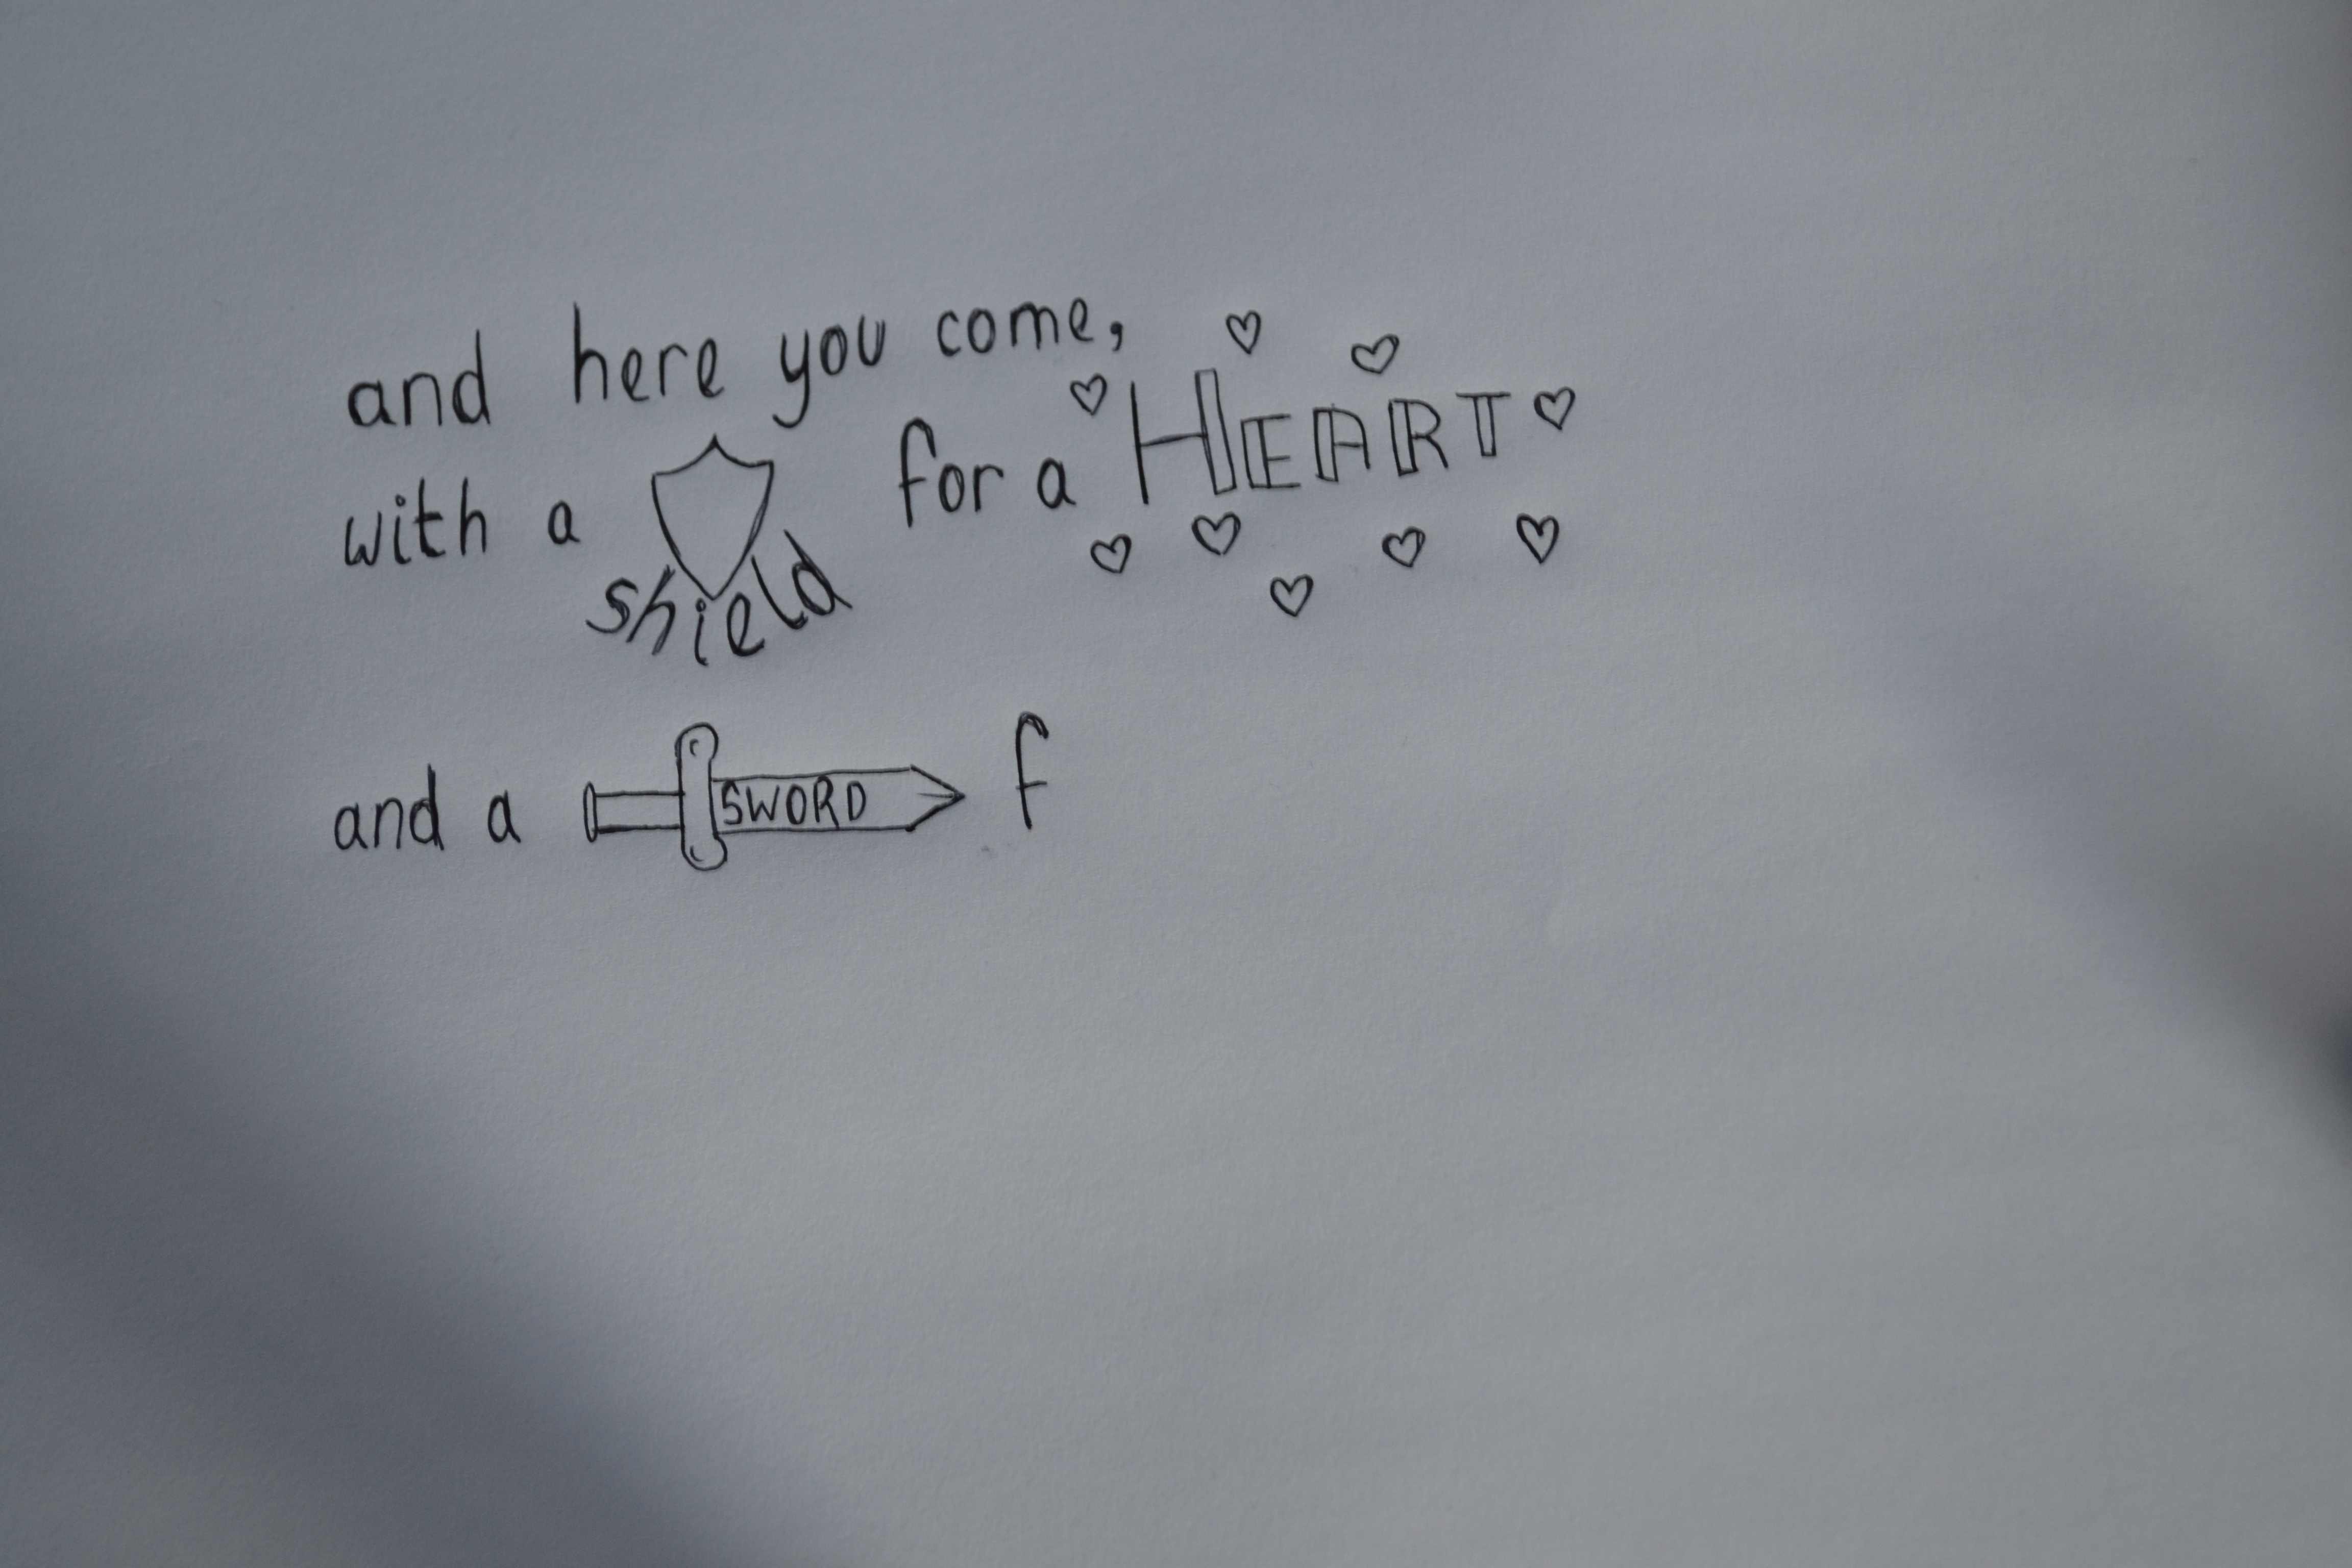 and here you come,
with a shield for a HEART
and a SWORD f